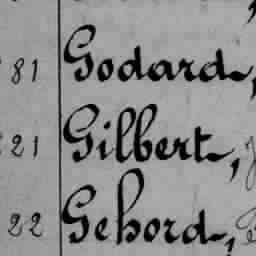 81 Godard,
21 Gilbert,
22 Gehord,